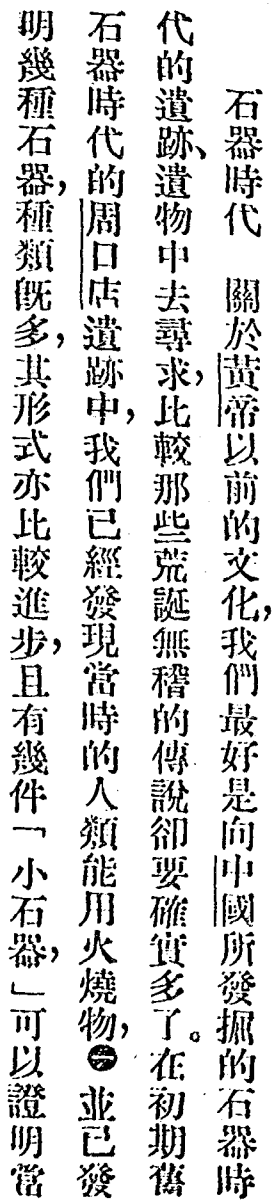 石器時代　關於黄帝以前的文化，我們最好是向中國所發掘的石器時
代的遺跡、遺物中去尋求，比較那些荒誕無稽的傳說卻要確實多了。在初期舊
石器時代的周口店遺跡中，我們已經發現當時的人類能用火燒物，㊀並已發
明幾種石器，種類既多，其形式亦比較進步，且有幾件「小石器，」可以證明當